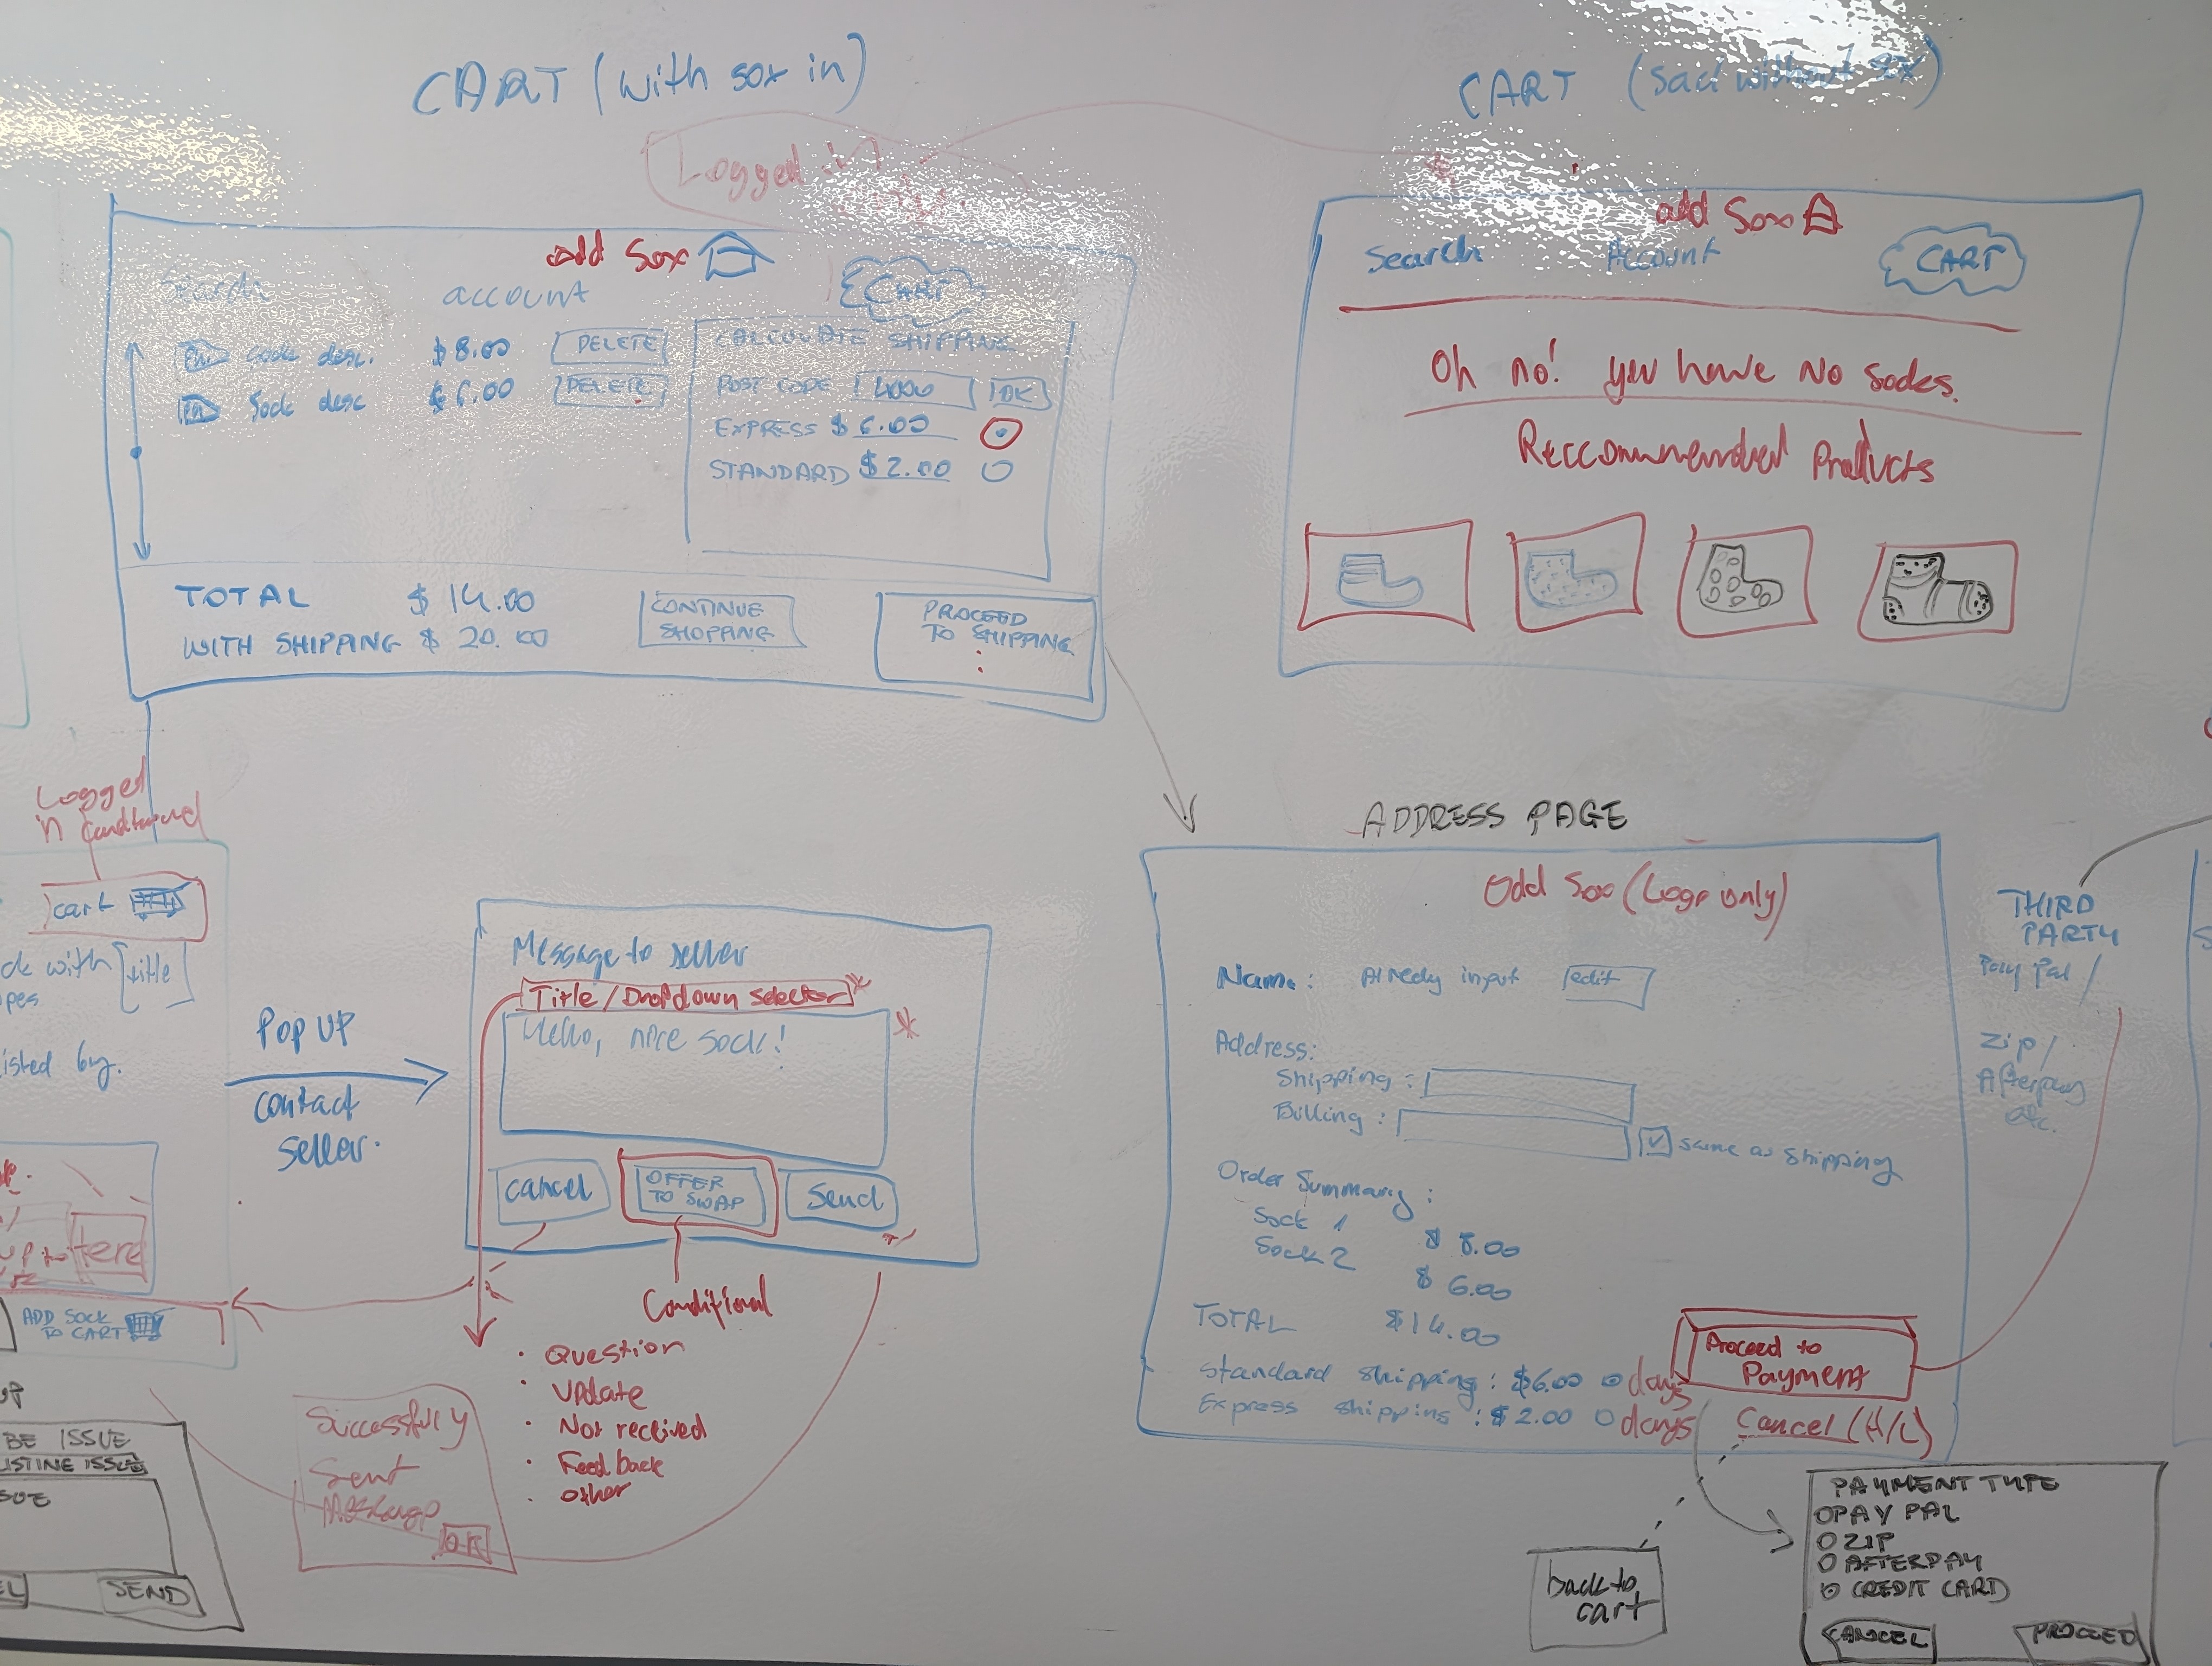 CART (with sox in)
Logged in
add Sox
Search
account
CART
Sock desc.
$8.00
DELETE
Sock desc
$6.00
DELETE
CALCULATE SHIPPING
POST CODE
4000
OK
EXPRESS $6.00
STANDARD $2.00
TOTAL $14.00
WITH SHIPPING $20.00
CONTINUE
SHOPPING
PROCEED
TO SHIPPING
CART (Sad without
add Sox
Search
Account
CART
Oh no! you have No socks.
Reccommended Products
Logged
in
cart
ck with
title
pes
isted by.
ADD SOCK
TO CART
POP UP
contact
seller.
Message to seller
Title/Dropdown selector*
*
Hello, nice sock!
cancel
OFFER
TO SWAP
Send
Conditional
• Question
• Update
• Not received
• Feedback
• other
Successfully
Sent
Message
OK
BE ISSUE
ISSUE
SUE
EL
SEND
ADDRESS PAGE
Odd Sox (Logo only)
Name: Already input
edit
Address:
Shipping:
Billing:
same as shipping
Order Summary:
Sock 1
$8.00
Sock 2
$6.00
TOTAL
$14.00
Standard shipping: $6.00
days
Express shipping: $2.00
days
Proceed to
Payment
Cancel (H/L)
THIRD
PARTY
Pay Pal/
Zip/
Afterpay
etc.
back to
cart
PAYMENT TYPE
PAY PAL
ZIP
AFTERPAY
CREDIT CARD
CANCEL
PROCEED